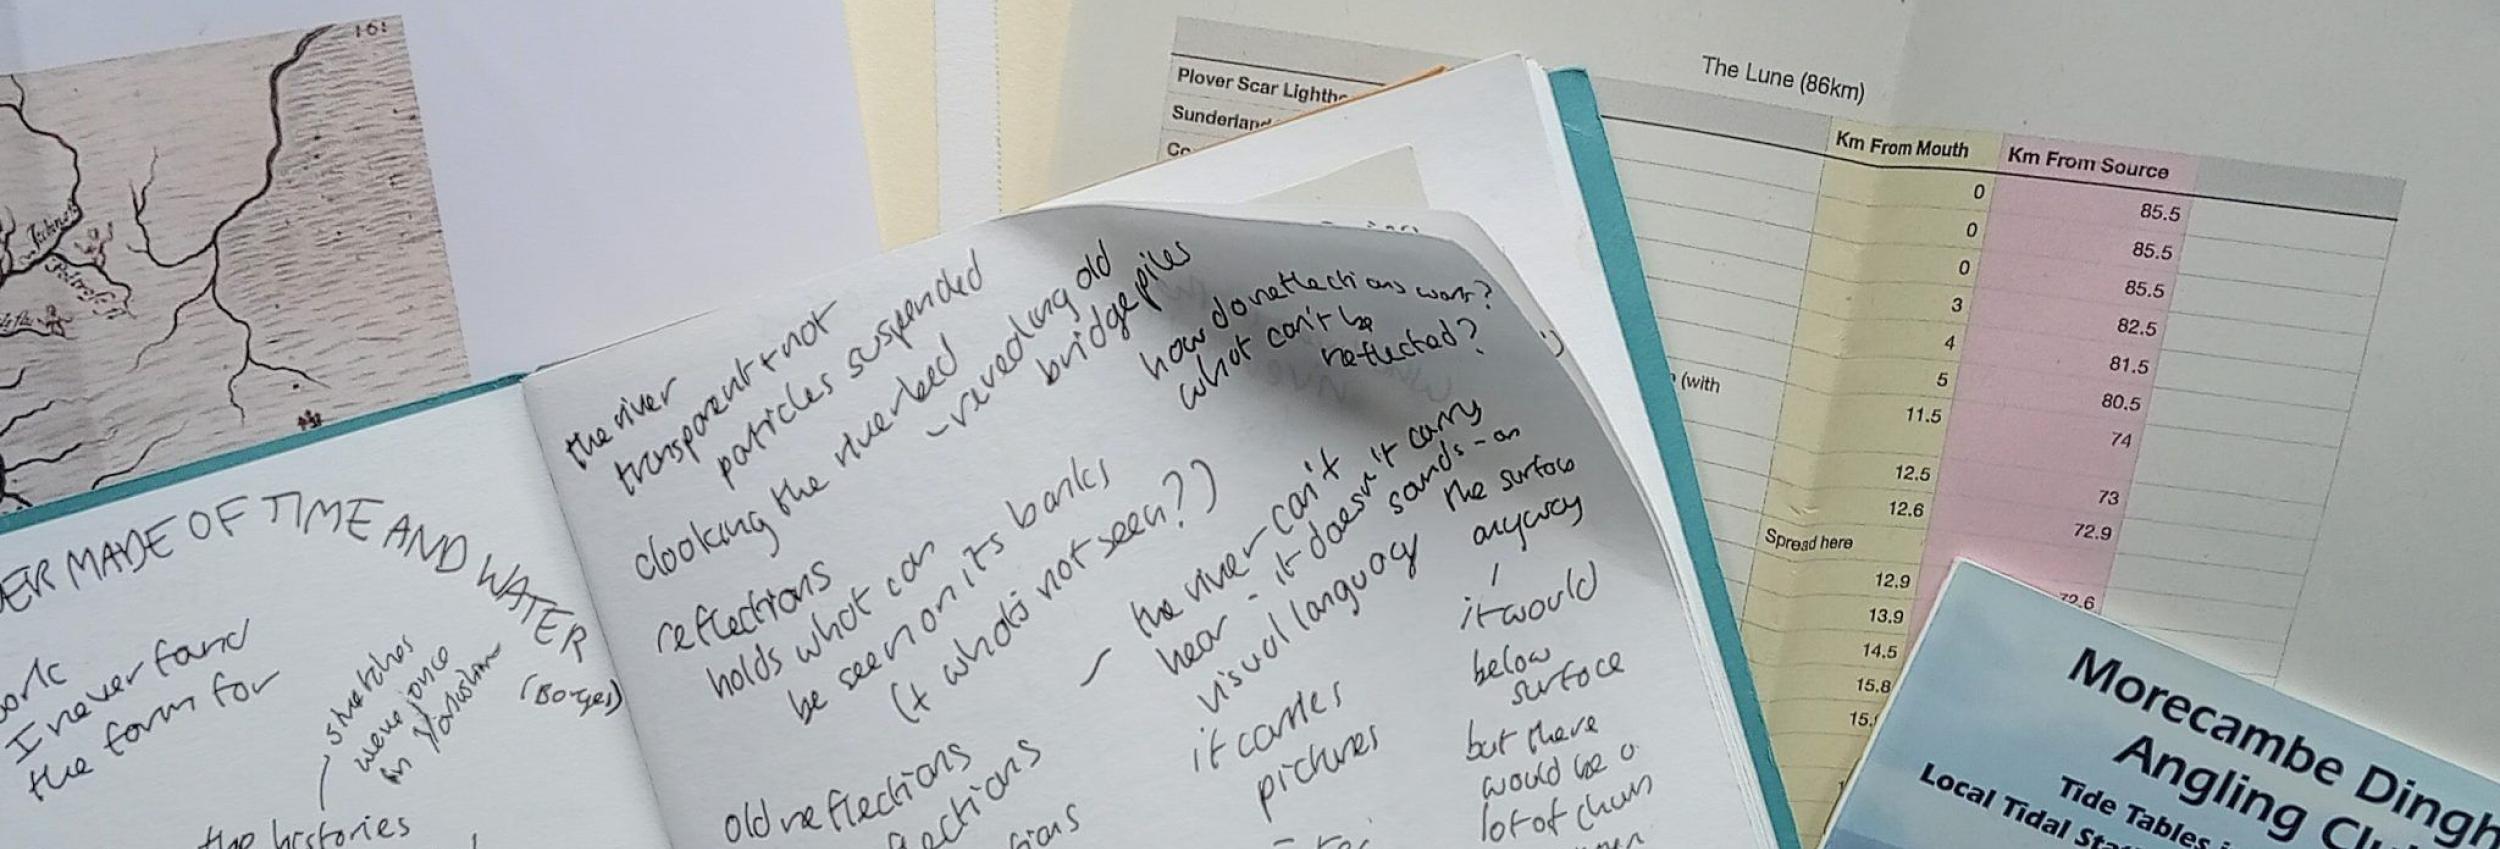 161
The Lune (86km)
Plover Scar Lightho
Sunderland
Co
Km From Mouth
Km From Source
0 85.5
0 85.5
0 85.5
3 82.5
4 81.5
(with
5 80.5
11.5 74
12.5 73
12.6 72.9
Spread here
12.9 72.6
13.9
14.5
15.8
15.
Morecambe Dingh
Angling Clu
Tide Tables
Local Tidal Sta
ER MADE OF TIME AND WATER
(Borges)
ork
I never found
the form for
stretches
were once
in Yorkshire
the histories
the river
transparent + not
particles suspended
clooking the riverbed
- revealing old
bridge piles
how do reflections work?
what can't be
reflected?
reflections
holds what can
be seen on its banks
(+ what's not seen?)
the river can't
hear - it doesn't carry
sounds - on
the surface
anyway
visual language
it carries
pictures
it would
below
surface
but there
would be a
lot of churn
old reflections